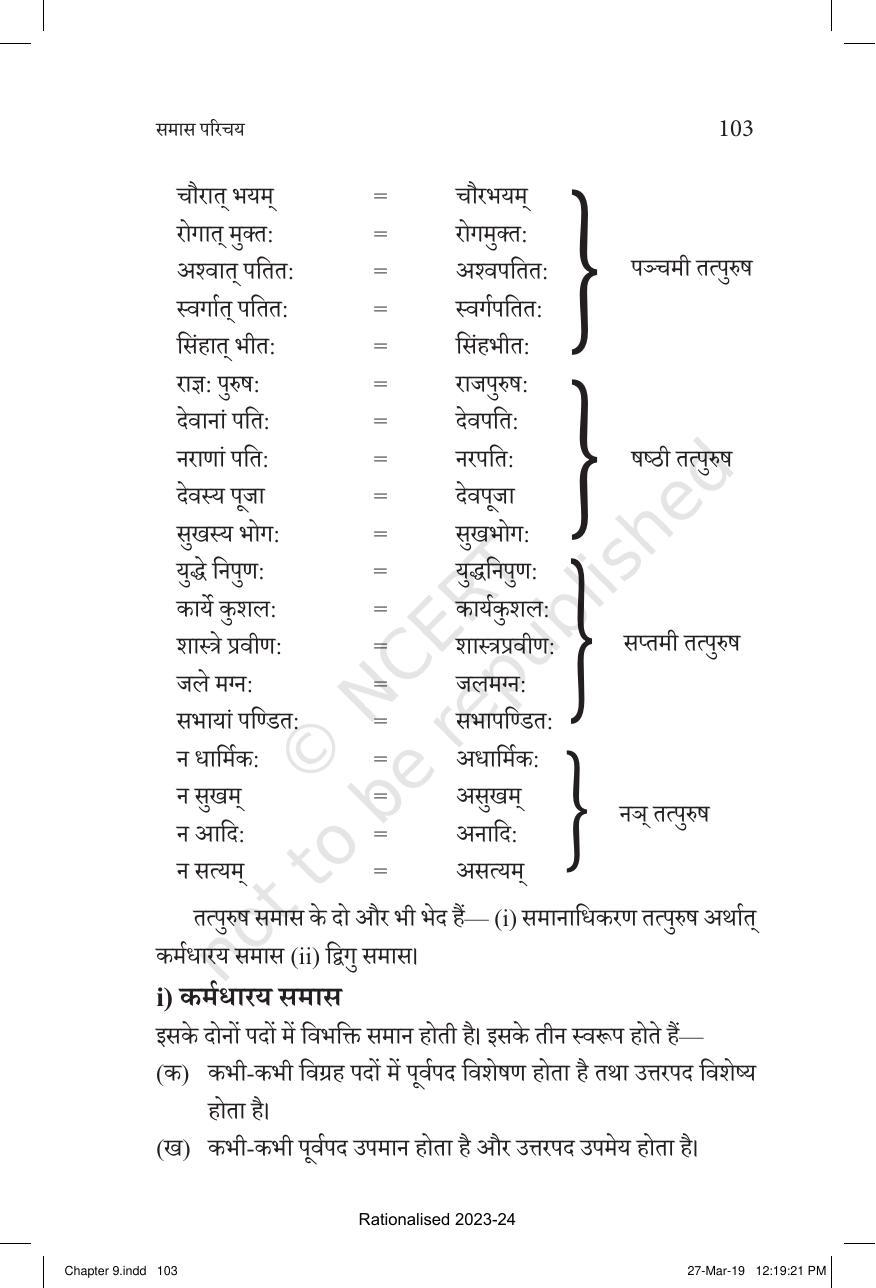 समास परिचय 103
चौरात् भयम् = चौरभयम्
रोगात् मुक्त: = रोगमुक्त:
अश्वात् पतित: = अश्वपतित:
पञ्चमी तत्पुरुष
स्वर्गात् पतित: = स्वर्गपतित:
सिंहात् भीत: = सिंहभीत:
राज्ञ: पुरुष: = राजपुरुष:
देवानां पति: = देवपति:
नराणां पति: = नरपति:
षष्ठी तत्पुरुष
देवस्य पूजा = देवपूजा
सुखस्य भोग: = सुखभोग:
युद्धे निपुण: = युद्धनिपुण:
कार्ये कुशल: = कार्यकुशल:
शास्त्रे प्रवीण: = शास्त्रप्रवीण:
सप्तमी तत्पुरुष
जले मग्न: = जलमग्न:
सभायां पण्डित: = सभापण्डित:
न धार्मिक: = अधार्मिक:
न सुखम् = असुखम्
नञ् तत्पुरुष
न आदि: = अनादि:
न सत्यम् = असत्यम्
तत्पुरुष समास के दो और भी भेद हैं— (i) समानाधिकरण तत्पुरुष अर्थात्
कर्मधारय समास (ii) द्विगु समास।
i) कर्मधारय समास
इसके दोनों पदों में विभक्ति समान होती है। इसके तीन स्वरूप होते हैं—
(क) कभी-कभी विग्रह पदों में पूर्वपद विशेषण होता है तथा उत्तरपद विशेष्य
होता है।
(ख) कभी-कभी पूर्वपद उपमान होता है और उत्तरपद उपमेय होता है।
© NCERT
not to be republished
Rationalised 2023-24
Chapter 9.indd 103 27-Mar-19 12:19:21 PM